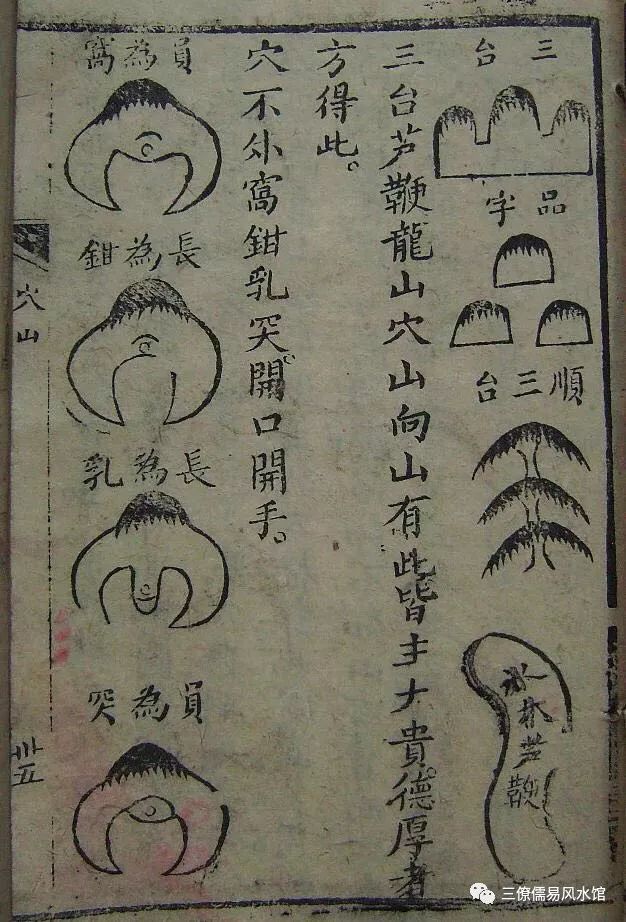 三台
品字
順三台
芦鞭
三台芦鞭龍山穴山向山有此皆主大貴。德厚者
方得此。
穴不外窩鉗乳突。開口開手。
員為窩
長為鉗
長為乳
員為突
穴山
卅五
三僚儒易风水馆